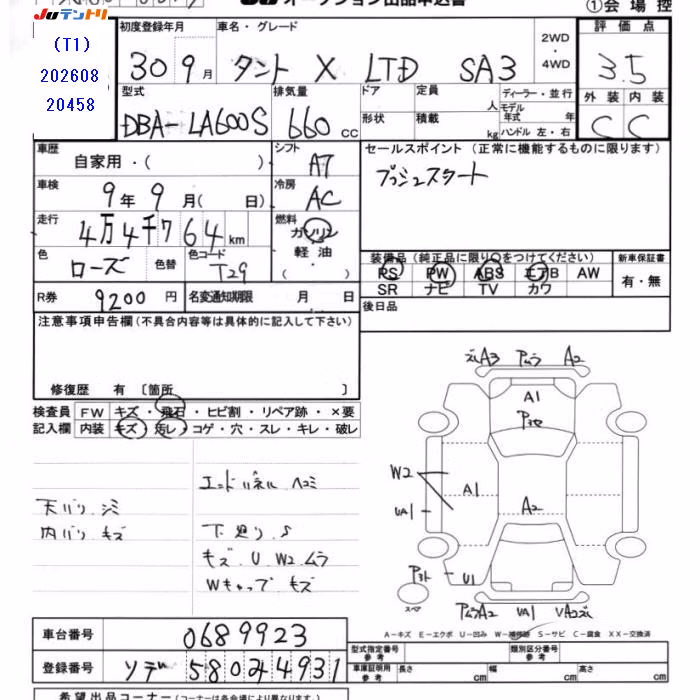 Juテントリ
オークション出品申込書
①会場控
(T1)
202608
20458
初度登録年月
30 9月
車名・グレード
タント X LTD SA3
2WD
・
4WD
評価点
3.5
外装 内装
C C
型式
DBA-LA600S
排気量
660 cc
ドア
形状
定員
人
積載
kg
ディーラー・並行
モデル
年式 年
ハンドル 左・右
車歴
自家用・( )
シフト
A7
セールスポイント (正常に機能するものに限ります)
プッシュスタート
車検
9年9月( 日)
冷房
AC
走行
4万4千764km
燃料
ガソリン
軽油
( ・ )
色
ローズ
色替
色コード
T29
装備品 (純正品に限り○をつけてください)
PS PW ABS エアB AW
SR ナビ TV カワ
新車保証書
有・無
R券
9200円
名変通知期限 月 日
後日品
注意事項申告欄 (不具合内容等は具体的に記入して下さい)
修復歴 有 〔箇所 〕
検査員
記入欄
FW キズ・飛石・ヒビ割・リペア跡・×要
内装 キズ・汚レ・コゲ・穴・スレ・キレ・破レ
エンドパネル ヘコミ
天バリ シミ
内バリ キズ
下廻り S
キズ U W2 ムラ
Wキャップ キズ
A3 A2
A1
W2
A1
UA1
A2
U1
スペア
A2 UA1
A-キズ E-エクボ U-凹み W-補修跡 S-サビ C-腐食 XX-交換済
車台番号 0689923
登録番号 ソデ 580 4931
型式指定番号
参考
類別区分番号
参考
車庫証明用
参考
長さ cm 幅 cm 高さ cm
希望出品コーナー (コーナーは各会場により異なります。)